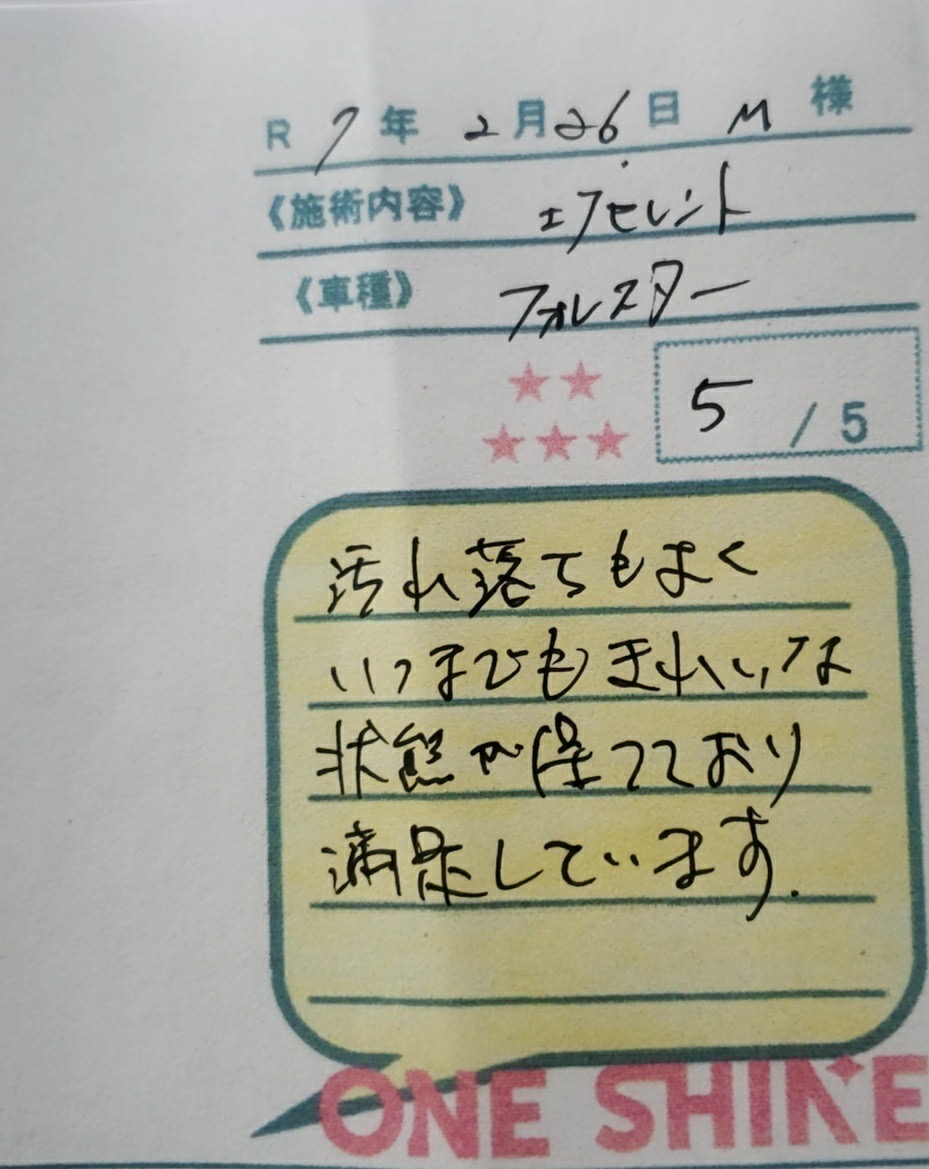 R 7年 2月26日 M 様
《施術内容》 エクセレント
《車種》 フォレスター
5 / 5
汚れ落ちもよく
いつまでもきれいな
状態が保てており
満足しています.
ONE SHINE